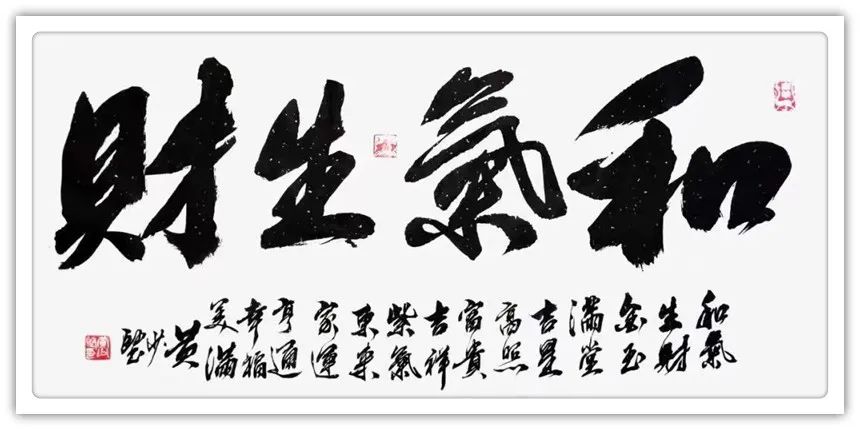 和氣生財
和氣
生財
金玉
滿堂
吉星
高照
富貴
吉祥
紫氣
東来
家運
亨通
幸福
美滿
黄